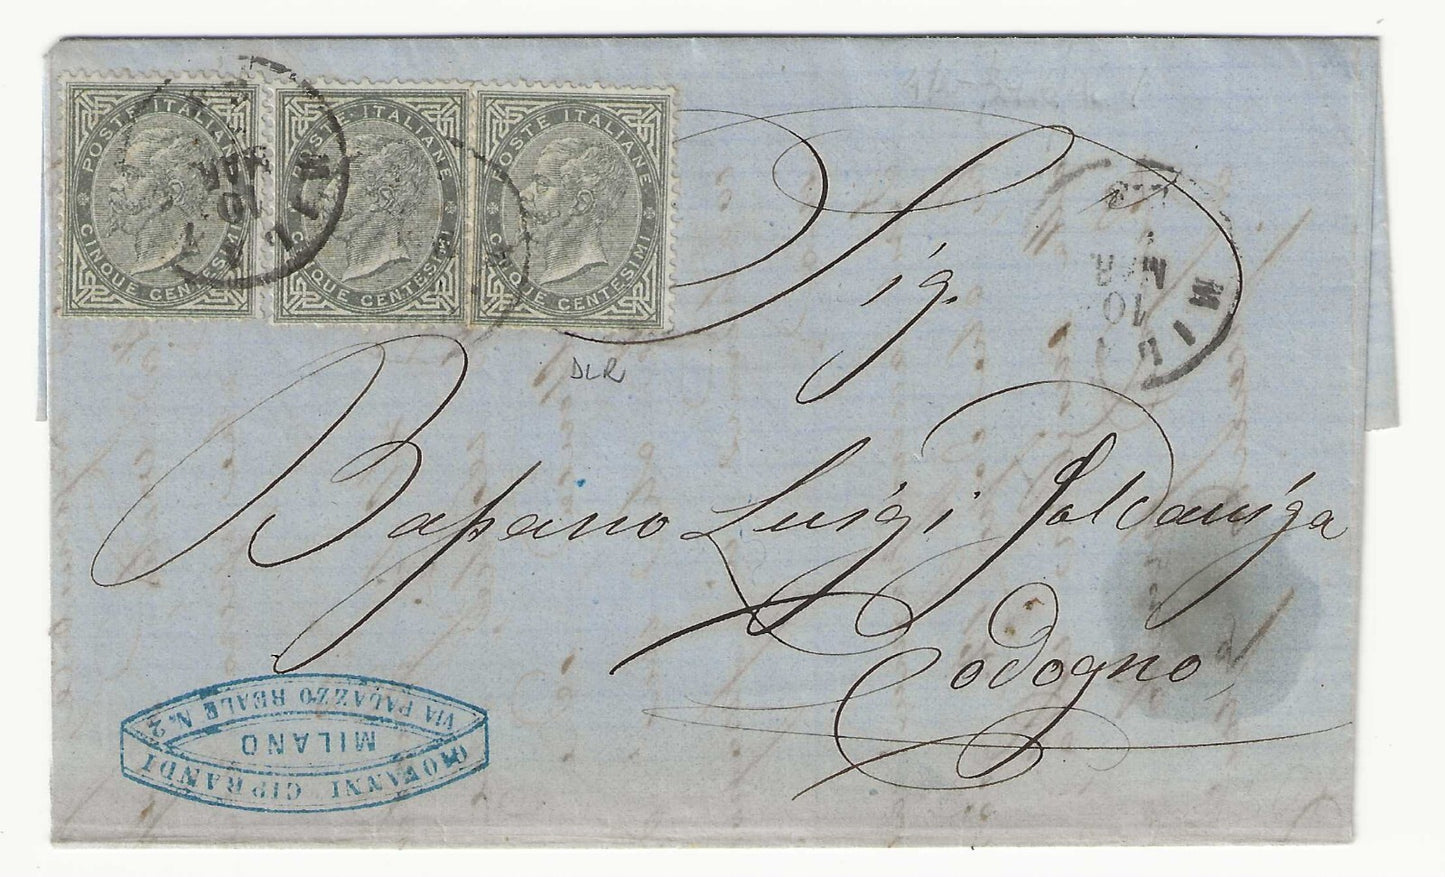 POSTE ITALIANE
CINQUE CENTESIMI
POSTE ITALIANE
CINQUE CENTESIMI
POSTE ITALIANE
CINQUE CENTESIMI
10
MAR
MILA
10
MAR
DLR
Sig.
Bassano Luigi Saldaniga
Codogno
GIOVANNI CIPRANDI
MILANO
VIA PALAZZO REALE N. 2